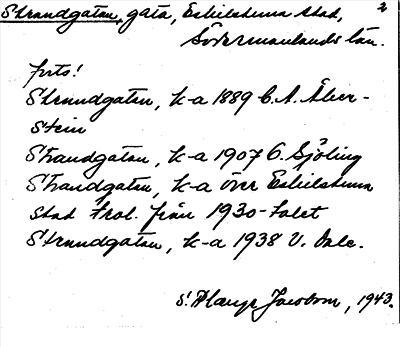 2
Strandgatan, gata, Eskilstuna stad,
Södermanlands län.
forts!
Strandgatan, k-a 1889 C. A. Åker-
stein
Strandgatan, k-a 1907 G. Sjöling
Strandgatan, k-a över Eskilstuna
stad trol. från 1930-talet
Strandgatan, k-a 1938 V. Dale.
S. Jacobson, 1943.